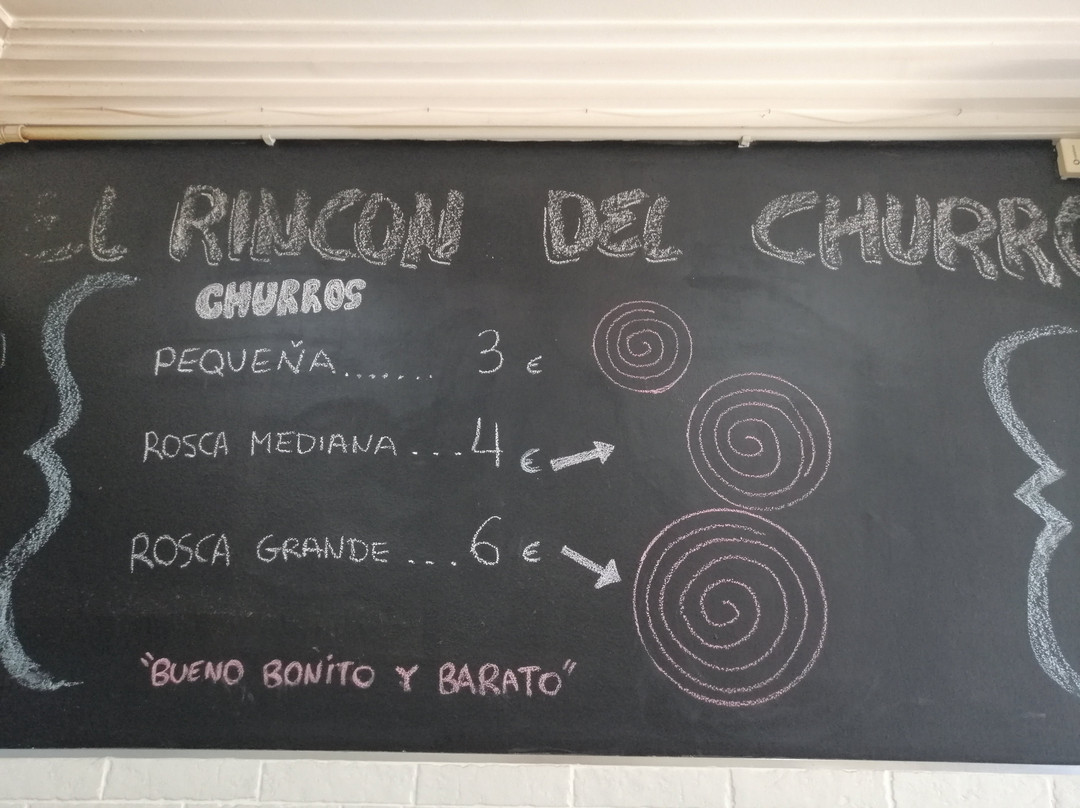 EL RINCON DEL CHURRO
CHURROS
PEQUEÑA....... 3 €
ROSCA MEDIANA ....4 €
ROSCA GRANDE ...6 €
"BUENO BONITO Y BARATO"